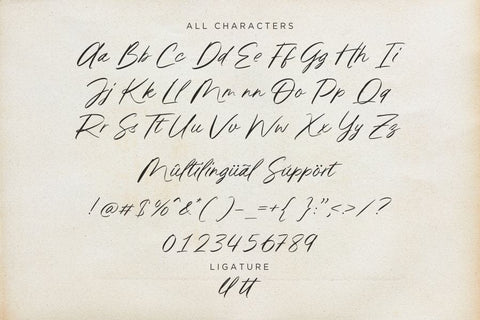 ALL CHARACTERS
Aa Bb Cc Dd Ee Ff Gg Hh Ii
Jj Kk Ll Mm nn Oo Pp Qq
Rr Ss Tt Uu Vv Ww Xx Yy Zz
Mûltilingüãl Súppört
!@#$%^&*()-_=+{}:",<>/?
0123456789
LIGATURE
ll tt